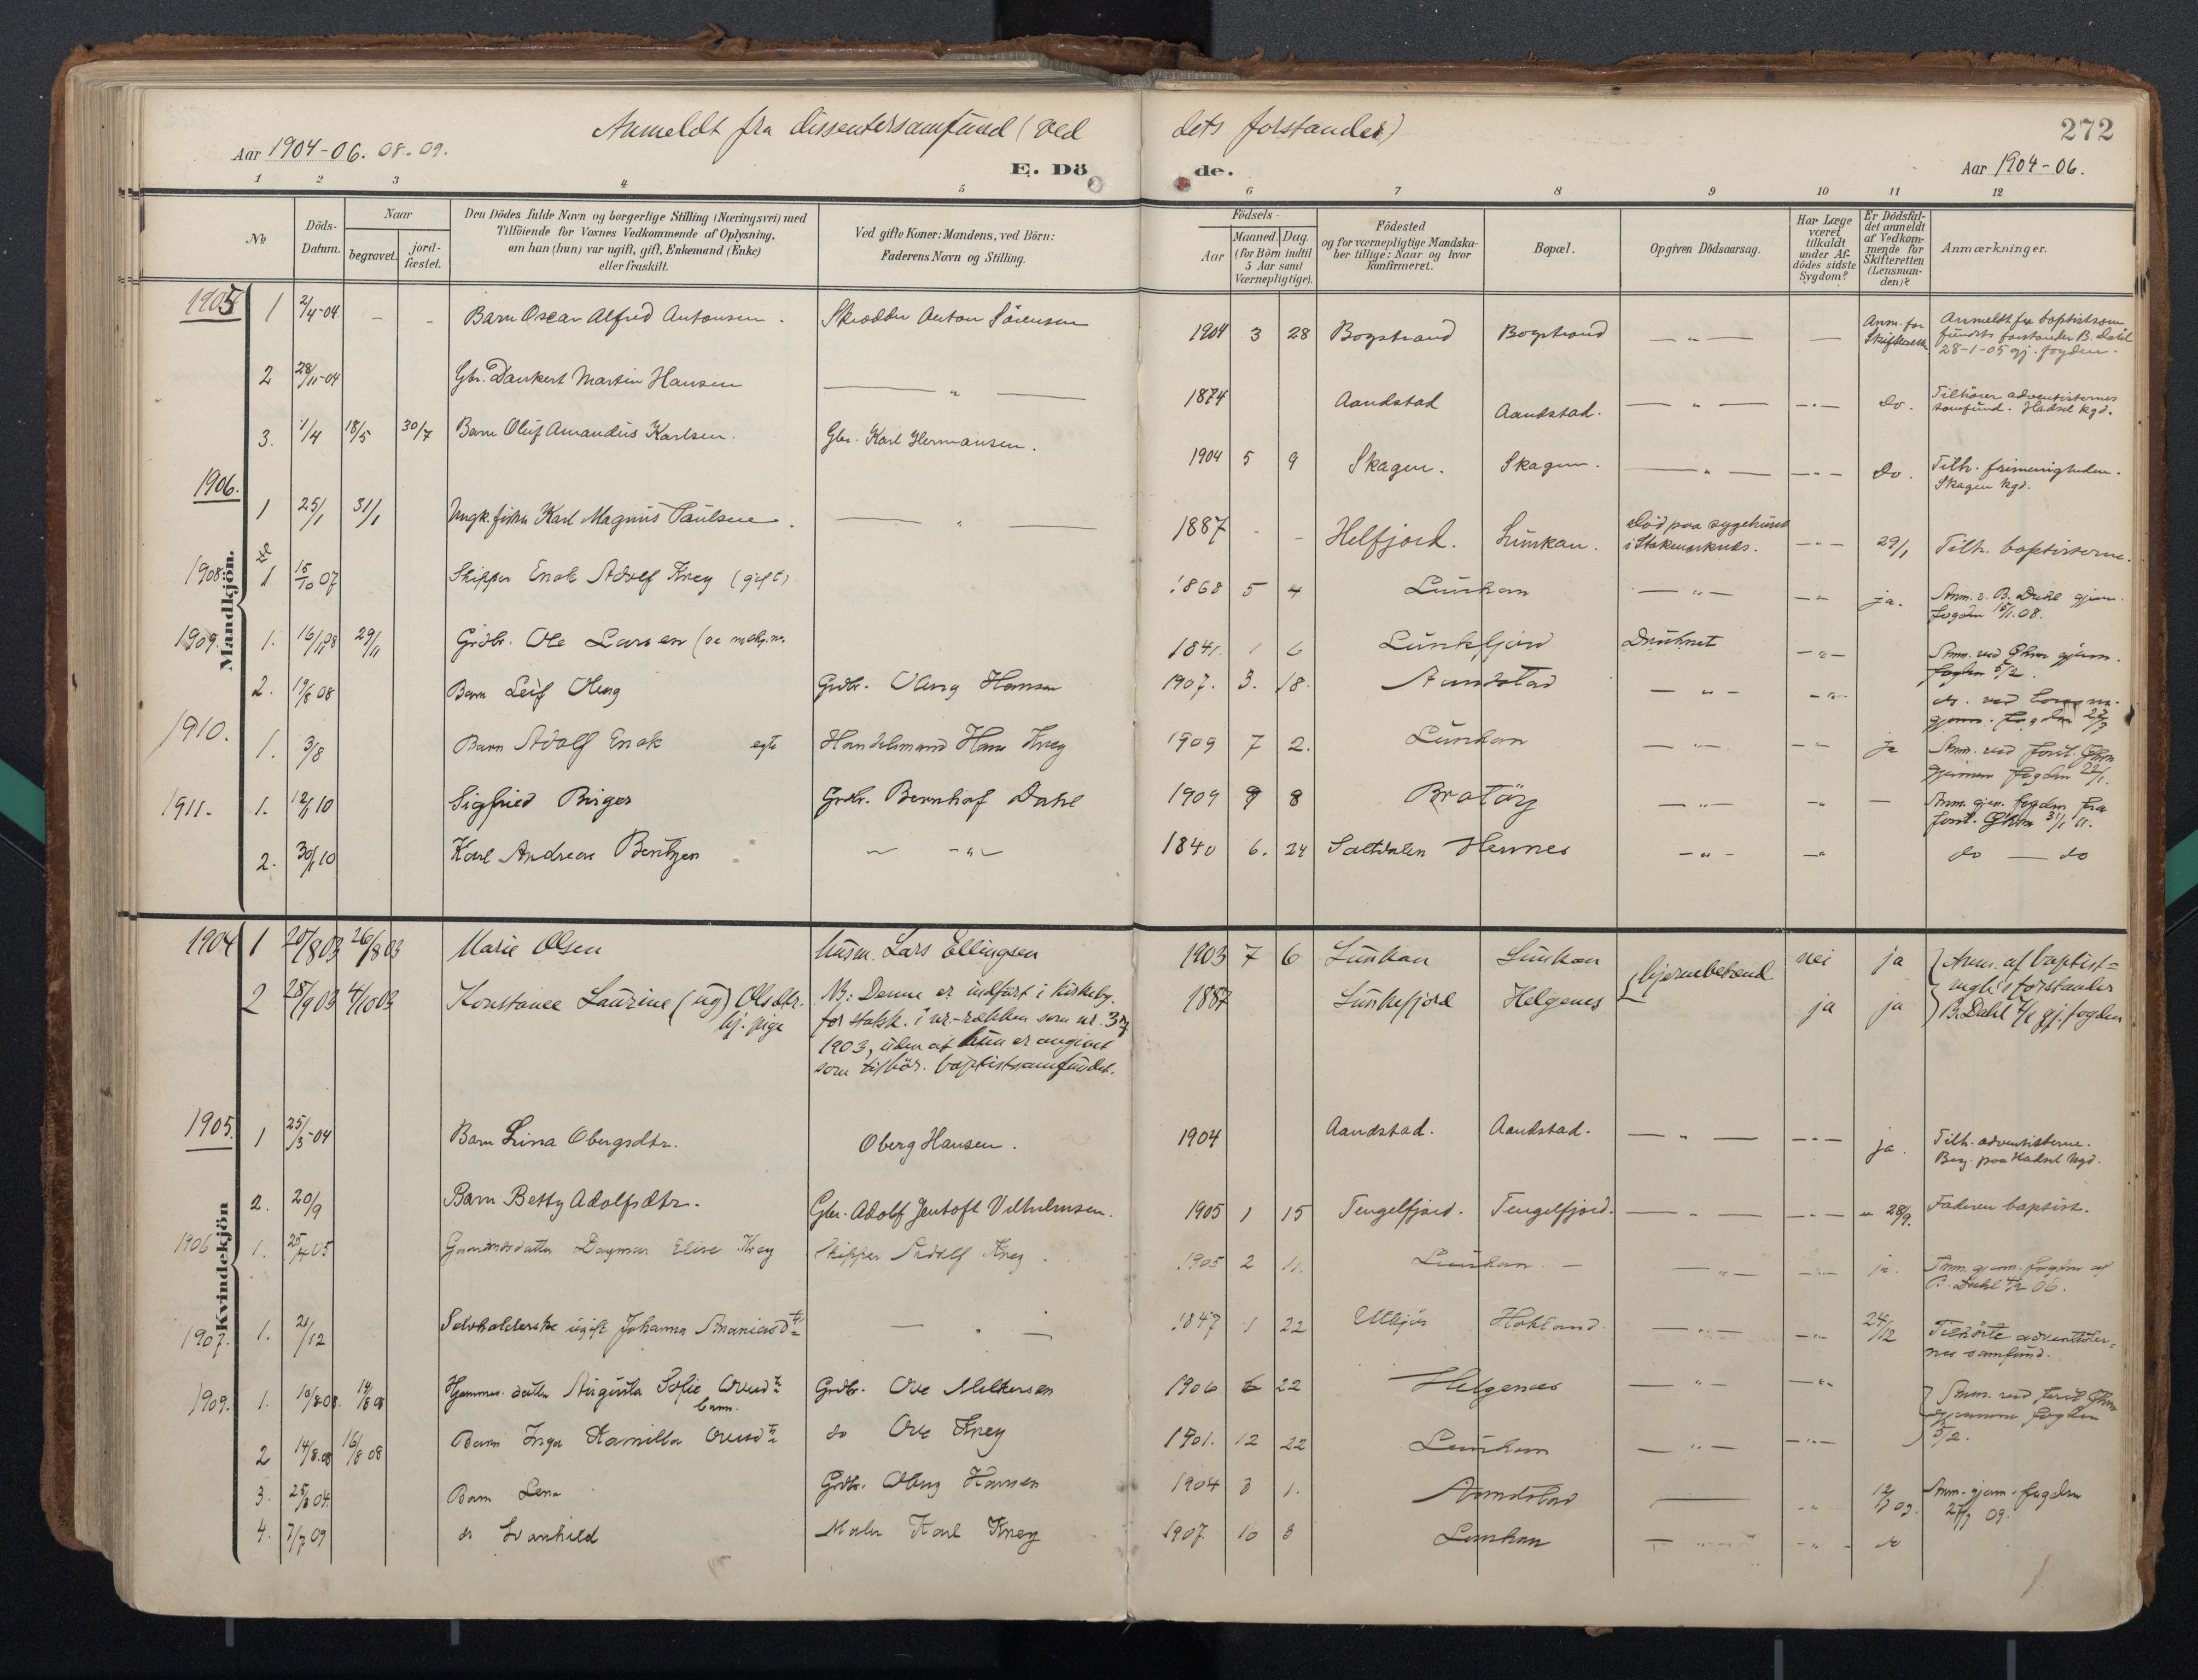 Anmeldt fra dissentersamfund (ved dets forstander)
272
Aar 1904-06. 08-09.
E. Döde.
Aar 1904-06.
1 2 3 4 5 6 7 8 9 10 11 12
№
Döds-Datum.
Naar
begravet.
jord-fæstet.
Den Dödes fulde Navn og borgerlige Stilling (Næringsvei) med
Tilföiende for Voxnes Vedkommende af Oplysning,
om han (hun) var ugift, gift, Enkemand (Enke)
eller fraskilt.
Ved gifte Koner: Mandens, ved Börn:
Faderens Navn og Stilling.
Födsels-
Aar
Maaned. Dag.
(for Börn indtil
5 Aar samt
Værnepligtige).
Födested
og for værnepligtige Mandska-
ber tillige: Naar og hvor
konfirmeret.
Bopæl.
Opgiven Dödsaarsag.
Har Læge
været
tilkaldt
under Af-
dödes sidste
Sygdom?
Er Dödsfal-
det anmeldt
af Vedkom-
mende for
Skifteretten
(Lensman-
den)?
Anmærkninger.
Mandkjön.
1905 1 2/4-04. - - Barn Oscar Alfred Antonsen. Skrædder Anton Sörensen 1904 3 28 Bogstrand Bogstrand — " — — Anm. for Skifteretten Anmeldt fra baptistsam
fundets forstander B. Dahl
28-1-05 gj. fogden.
2 28/11-04 Gbr. Dankert Martin Hansen — " — 1874 Aandstad Aandstad. — " — — " — do. Tilhörer adventisternes
samfund. Hadsel kgd.
3. 1/4 18/5 30/7 Barn Oluf Amandus Karlsen. Gbr. Karl Hermansen. 1904 5 9 Skagen. Skagen. — " — — " — do. Tilh. frimenigheden.
Skagen kgd.
1906. 1 25/1 31/1 Ungk. fisker Karl Magnus Paulsen. — " — 1887 - - Helfjord. Lunkan. Död paa sygehuset
i Stokmarknes. — " — 29/1 Tilh. baptisterne.
1908. 1 15/10 07 Skipper Enok Adolf Krey (gift) 1868 5 4 Lunkan — " — — " ja. Anm. v. B. Dahl gjen.
fogden 15/1.08.
1909. 1. 16/11 08 29/11 Grdbr. Ole Larsen 1841. 1 6 Lunkfjord Druknet — " — Anm. ved gjem.
fogden 5/2.
2. 19/8 08 Barn Leif Oberg Grdbr. Oberg Hansen 1907. 3. 18. Aandstad — " — — " —
1910. 1. 3/8 Barn Adolf Enok egte Handelsmand Hans Krey 1909 7 2. Lunkan — " — — " — ja Anm. ved forst.
gjennem fogden 22/1.
1911. 1. 12/1 10 Sigfried Birger Grdbr. Bernhof Dahl 1909 9 8 Bratöy — " — — " — Anm. gjen. fogden fra
forst. 31/1 11.
2. 30/1 10 Karl Andreas Bentzen — " — 1840 6. 24 Saltdalen Hennes — " — — " do — do
Kvindekjön
1904 1 20/8 03 26/8 03 Marie Olsen Husm. Lars Ellingsen 1903 7 6 Lunkan Lunkan hjernebetænd. nei ja Anm. af baptist=
2 28/9 03 4/10 03 Konstance Laurine (ug) Olsdtr. NB: Denne er indfört i kirkeby. 1887 Lunkefjord Helgenes ja ja forstander
hj. pige for stokk. i nr.-rækken som nr. 37 B. Dahl gj. fogden
1903, uden at hun er angivet
som tilhör. baptistsamfundet.
1905. 1 25/3-04 Barn Lina Obergsdtr. Oberg Hansen. 1904 Aandstad. Aandstad. — " — — " — ja. Tilh. adventisterne.
Beg. paa Hadsel kgd.
2. 20/9 Barn Betty Adolfsdtr. Gbr. Adolf Jentoft Vilhelmsen. 1905 1 15 Tengelfjord. Tengelfjord. — " — — " — 28/9. Faderen baptist.
1906 1. 25/4 05 Dagmar Elise Krey Skipper Adolf Krey. 1905 2 11. Lunkan. — — " — — " — ja. Anm. gjem. fogden af
B. Dahl 06.
1907. 1. 21/12 Selvholderske ugift Johanna Ananiasdtr — " — 1847 1 22 Hokland — " — — " — 24/12 Tilhörte adventister-
nes samfund.
1909. 1. 10/8-08. 14/8 08 Hjemmev. datter Augusta Sofie Ovedtr Grdbr. Ove Melkersen 1906 6 22 Helgenes — " — — " — Anm. ved forst.
barn. gjennem fogden
2 14/8.08 16/8 08 Barn Inga Kamilla Ovesdtr do Ove Krey 1901. 12 22 Lunkan — " — — " — 5/2.
3. 25/3 04. Barn Lena Grdbr. Oberg Hansen 1904 3 1. Aandstad — " 12/7 09. Anm. gjem. fogden
27/7 09.
4. 7/7 09 do Svanhild Maler Karl Krey 1907. 10 3 Lunkan — " — - " - do